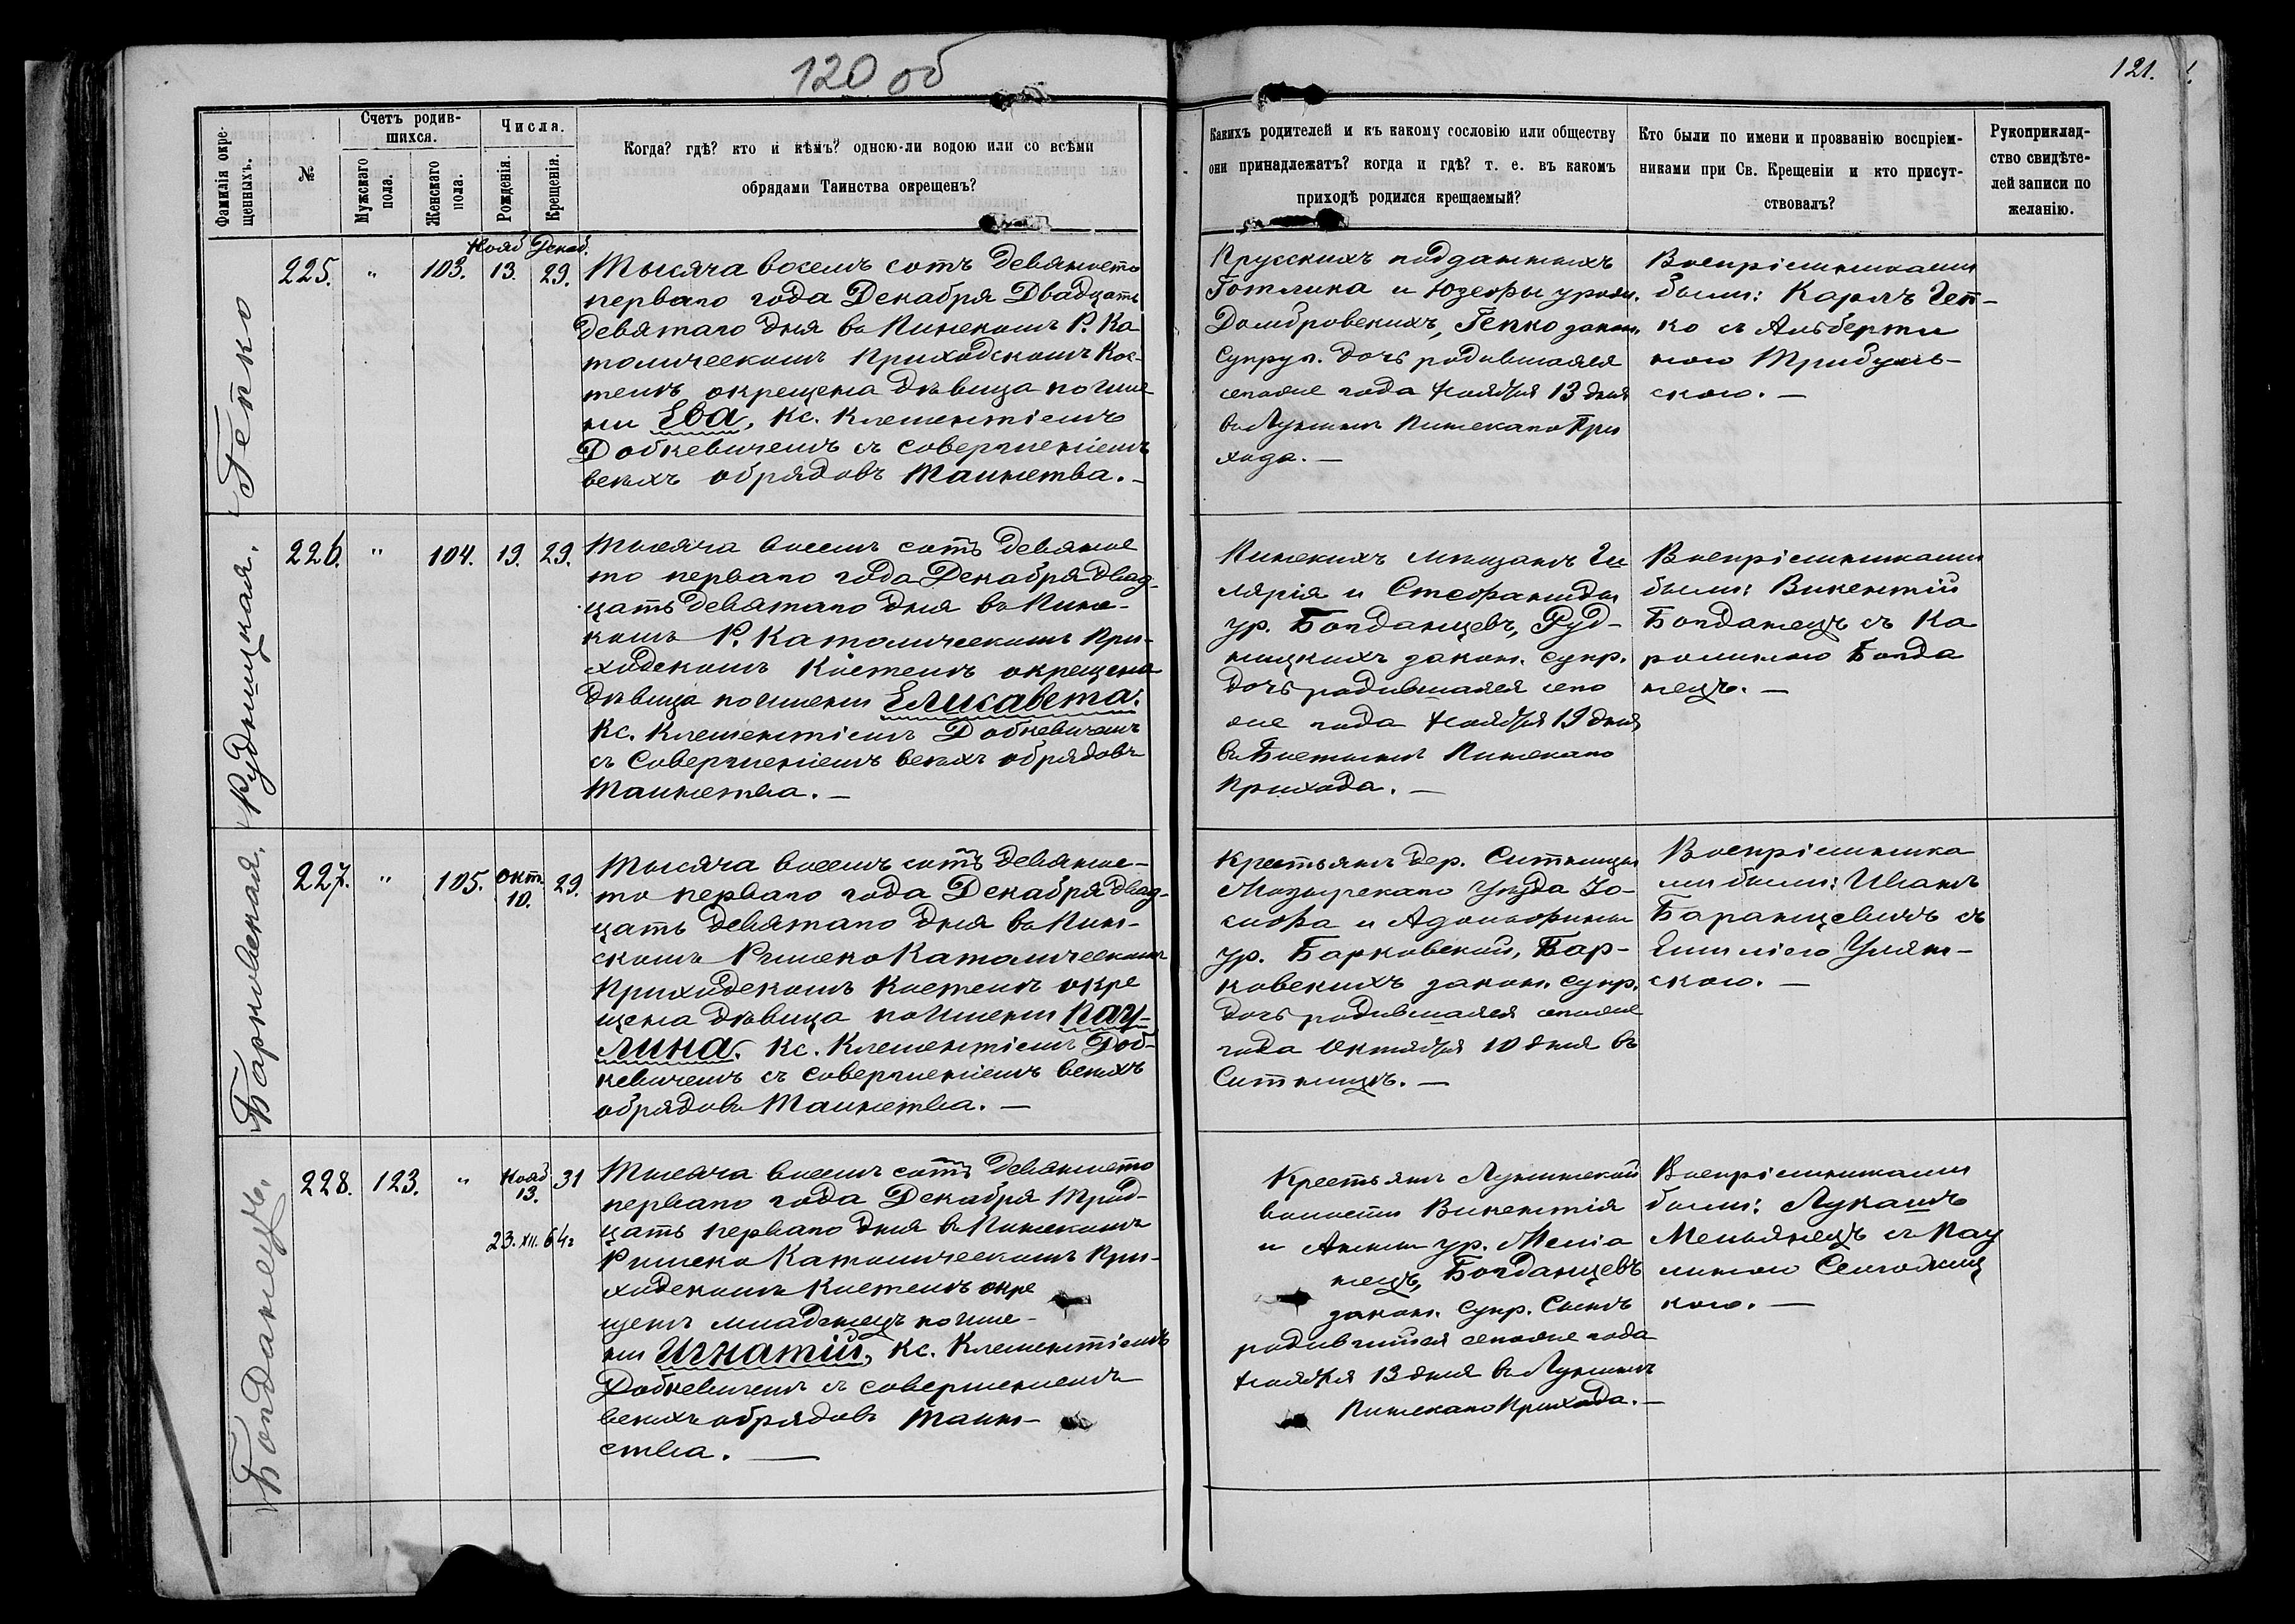 120 об
121.
Фамилія окре-
щенныхъ.
№
Счетъ родив-
шихся.
Мужскаго
пола.
Женскаго
пола.
Числа.
Рожденія.
Крещенія.
Когда? гдѣ? кто и кѣмъ? одною-ли водою или со всѣми
обрядами Таинства окрещенъ?
Какихъ родителей и къ какому сословію или обществу
они принадлежатъ? когда и гдѣ? т. е. въ какомъ
приходѣ родился крещаемый?
Кто были по имени и прозванію воспріем-
никами при Св. Крещеніи и кто присут-
ствовалъ?
Рукоприклад-
ство свидѣте-
лей записи по
желанію.
Гепко
225. " 103.
Нояб Декаб.
13. 29.
Тысяча восемь сотъ девяносто
перваго года Декабря Двадцать
девятаго дня въ Пинскомъ Р. Ка
толическомъ Приходскомъ Кос-
телѣ окрещена дѣвица по име
ни Ева, Кс. Клементіемъ
Добкевичемъ съ совершеніемъ
всѣхъ обрядовъ Таинства. –
Прусскихъ подданныхъ
Готлипа и Юзефы урож.
Домбровскихъ, Гепко закон.
Супруг. дочь родившаяся
сегоже года Ноября 13 дня
въ Лунинѣ Пинскаго При
хода. –
Воспріемниками
были: Карлъ Геп-
ко съ Альберти
ною Трибуль-
скою. –
Рудницкая.
226. " 104. 19. 29.
Тысяча восемь сотъ девянос
то перваго года Декабря двад-
цать девятаго дня въ Пинс-
комъ Р. Католическомъ При-
ходскомъ Костелѣ окрещена
дѣвица по имени Елисавета.
Кс. Клементіемъ Добкевичемъ
съ Совершеніемъ всѣхъ обрядовъ
Таинства. –
Пинскихъ мѣщанъ Ги
лярія и Стефаниды
ур. Богданцевъ, Руд-
ницкихъ закон. супр.
дочь родившаяся сего
же года Ноября 19 дня
Пинскаго
Прихода. –
Воспріемниками
были: Викентій
Богданецъ съ Ка
ролиною Богда
нецъ. –
Барковская.
227. " 105.
Окт.
10.
29.
Тысяча восемь сотъ девянос-
то перваго года Декабря двад-
цать девятаго дня въ Пин-
скомъ Римско Католическомъ
Приходскомъ Костелѣ окре
щена дѣвица по имени Пау-
лина. Кс. Клементіемъ Доб-
кевичемъ съ совершеніемъ всѣхъ
обрядовъ Таинства. –
Крестьянъ дер. Ситницы
Мозырскаго Уѣзда Іо-
сифа и Адольфины
ур. Барковской, Бар-
ковскихъ закон. супр.
дочь родившаяся сегоже
года Октября 10 дня въ
Ситницѣ. –
Воспріемника
ми были: Иванъ
Баранцевичъ съ
Емиліею Улян-
скою. –
Богданецъ.
228. 123. "
Нояб
13.
31
23.XII.64г
Тысяча восемь сотъ девяносто
перваго года Декабря Трид-
цать перваго дня въ Пинскомъ
Римско Католическомъ При-
ходскомъ Костелѣ окре
щенъ младенецъ по име-
ни Игнатій, Кс. Клементіемъ
Добкевичемъ съ совершеніемъ
всѣхъ обрядовъ Таин-
ства. –
Крестьянъ Лунинской
волости Викентія
и Анны ур. Мелія
нецъ, Богданцевъ
закон. супр. Сынъ
родившійся сегоже года
Ноября 13 дня въ Лунинѣ
Пинскаго Прихода. –
Воспріемниками
были: Лукашъ
Мельянецъ съ Пау
линою
кою. –